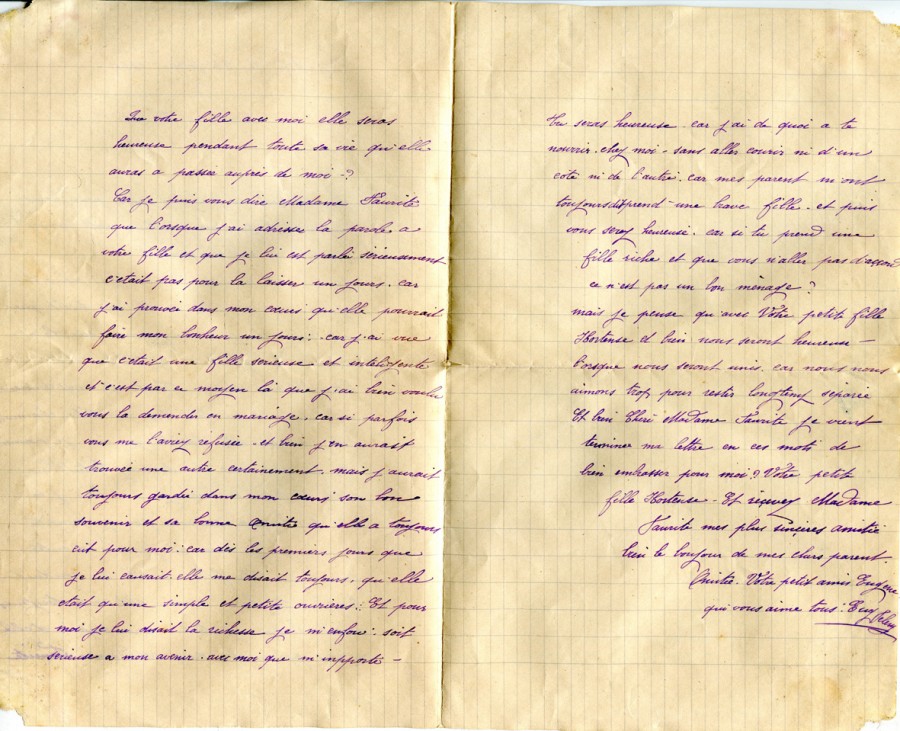 Que votre fille avec moi elle seras
heureuse pendant toute sa vie qu'elle
auras a passée auprès de moi -?
Car je puis vous dire Madame Faurite
que l'orsque j'ai adressée la parole a
votre fille et que je lui est parlé sérieusement
c'etait pas pour la laisser un jours. car
j'ai prouvée dans mon cœurs qu'elle pourrait
faire mon bonheur un jours: car j'ai vue
que c'était une fille serieuse et inteligente
et c'est par ce moyen là que j'ai bien voulu
vous la demender en mariage. car si parfois
vous me l'avrez refusée. et bien j'en aurait
trouvée une autre certainement. mais j'aurait
toujours gardé dans mon cœurs son bon
souvenir et sa bonne amitié qu'elle a toujours
eut pour moi: car dès les premiers jours que
je lui causait elle me disait toujours. qu'elle
etait qu'une simple et petite ouvrières: Et pour
moi je lui disait la richesse je m'enfoue: soit
serieuse a mon avenir. avec moi que m'inpporte -
Tu seras heureuse. car j'ai de quoi a te
nourrir. chez moi. sans aller courir ni d'un
coté ni de l'autre. car mes parent m'ont
toujours dit prend une brave fille. et puis
vous serez heureuse. car si tu prend une
fille riche et que vous n'aller pas d'accord
ce n'est pas un bon ménage?
mais je pense qu'avec Votre petit fille
Hortense et bien nous seront heureux -
lorsque nous seront unis. car nous nous
aimons trop pour rester longtems séparée
Et bien Chèri Madame Faurite je vient
terminer ma lettre en ces moti de
bien embrasser pour moi? Votre petite
fille Hortense. Et réçevez Madame
Faurite mes plus sinçères amitié
bien le bonjour de mes chers parent.
Amitié. Votre petit amis Eugene
qui vous aime tous: Eug